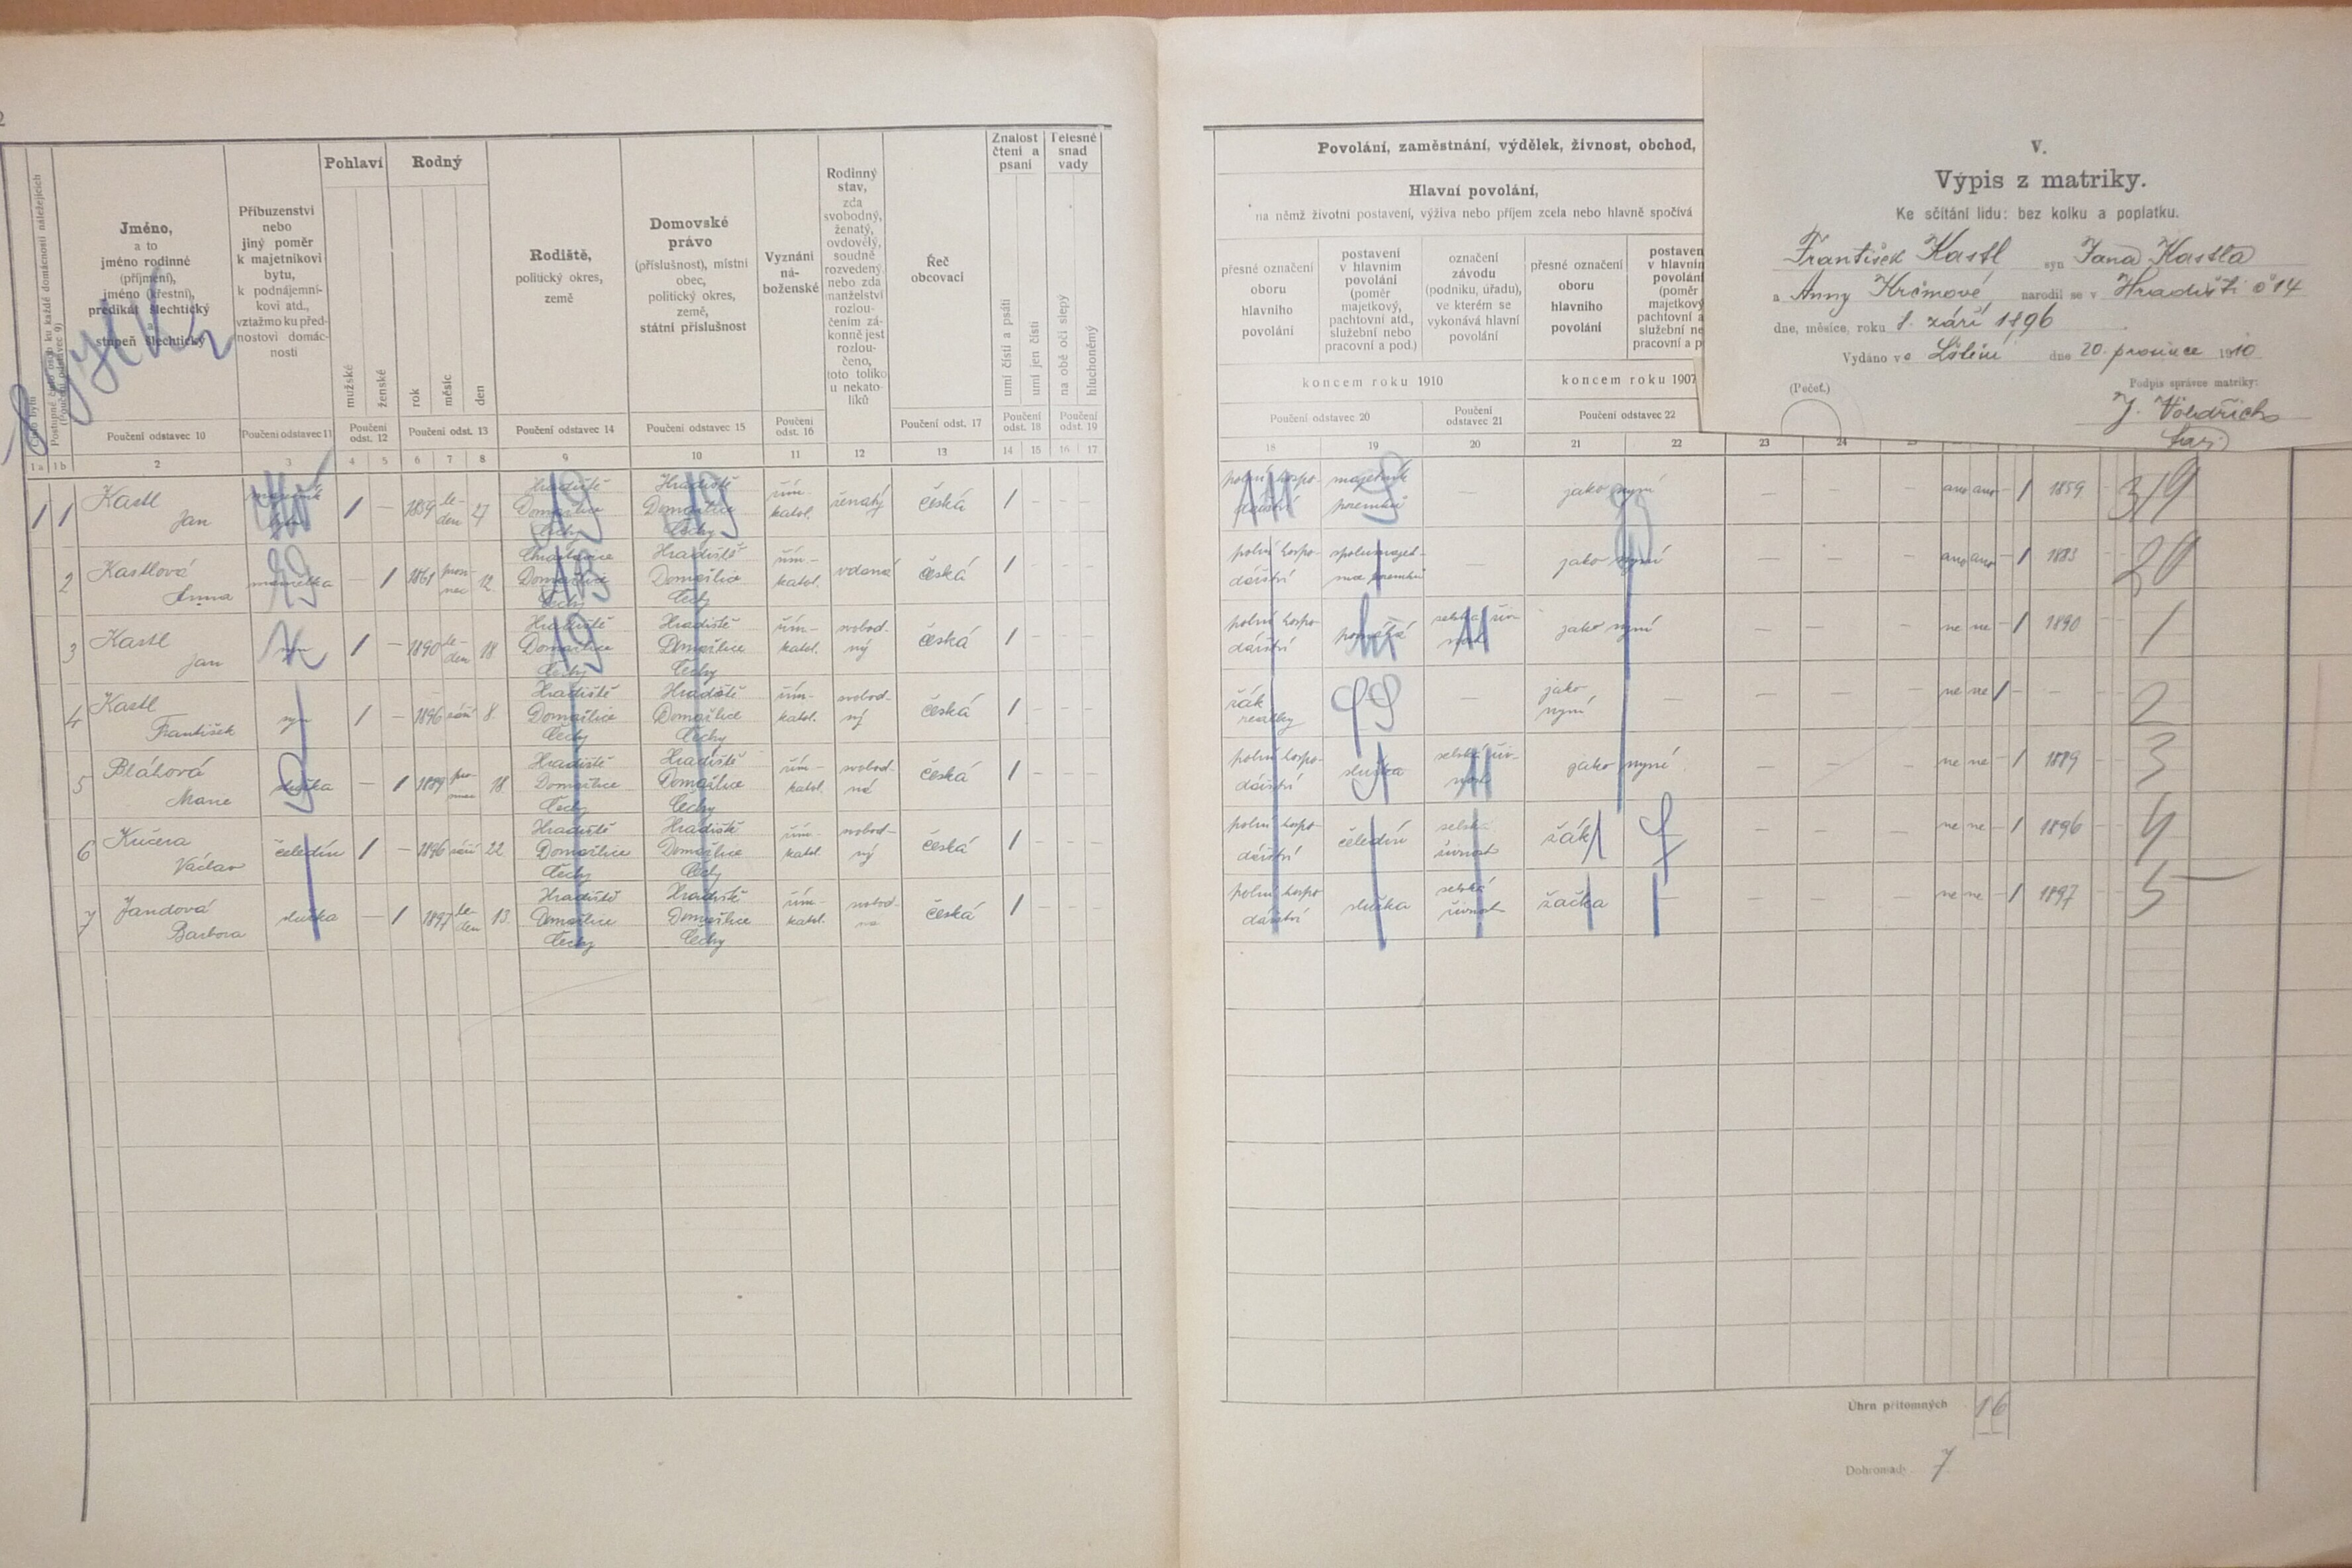 2
Číslo bytu
Postupné číslo osob ku každé domácnosti náležejících
(Poučení odstavec 9)
Jméno,
a to
jméno rodinné
(příjmení),
jméno (křestní),
predikát šlechtický
a
stupeň šlechtický
Příbuzenství
nebo
jiný poměr
k majetníkovi
bytu,
k podnájemní-
kovi atd.,
vztažmo ku před-
nostovi domác-
nosti
Pohlaví
mužské
ženské
Rodný
rok
měsíc
den
Rodiště,
politický okres,
země
Domovské
právo
(příslušnost), místní
obec,
politický okres,
země,
státní příslušnost
Vyznání
ná-
boženské
Rodinný
stav,
zda
svobodný,
ženatý,
ovdovělý,
soudně
rozvedený
nebo zda
manželství
rozlou-
čením zá-
konně jest
rozlou-
čeno,
toto toliko
u nekato-
líků
Řeč
obcovací
Znalost
čtení a
psaní
umí čísti a psáti
umí jen čísti
Tělesné
snad
vady
na obě oči slepý
hluchoněmý
Poučení odstavec 10
Poučení odstavec 11
Poučení
odst. 12
Poučení odst. 13
Poučení odstavec 14
Poučení odstavec 15
Poučení
odst. 16
Poučení odst. 17
Poučení
odst. 18
Poučení
odst. 19
1a 1b 2 3 4 5 6 7 8 9 10 11 12 13 14 15 16 17
1 1 Kastl
Jan
majetník
bytu
1 — 1859 le-
den 27
Hradiště
Domažlice
Čechy
Hradiště
Domažlice
Čechy
řím-
katol.
ženatý
česká
1 - - -
2 Kastlová
Anna
manželka
— 1 1861 pros-
inec 12.
Domažlice
Čechy
Hradiště
Domažlice
Čechy
řím-
katol.
vdaná
česká
1 - - -
3 Kastl
Jan
syn
1 — 1890 le-
den 18
Hradiště
Domažlice
Čechy
Hradiště
Domažlice
Čechy
řím-
katol.
svobod-
ný
česká
1 - - -
4 Kastl
František
syn
1 — 1896 září 8.
Hradiště
Domažlice
Čechy
Hradiště
Domažlice
Čechy
řím-
katol.
svobod-
ný
česká
1 - - -
5 Bláhová
Marie
služka
— 1 1889 18
Hradiště
Domažlice
Čechy
Hradiště
Domažlice
Čechy
řím-
katol.
svobod-
ná
česká
1 - - -
6 Kučera
Václav
čeledín
1 — 1896 září 22
Hradiště
Domažlice
Čechy
Hradiště
Domažlice
Čechy
řím-
katol.
svobod-
ný
česká
1 - - -
7 Jandová
Barbora
služka
— 1 1897 le-
den 13.
Hradiště
Domažlice
Čechy
Hradiště
Domažlice
Čechy
řím-
katol.
svobod-
ná
česká
1 - - -
Povolání, zaměstnání, výdělek, živnost, obchod,
Hlavní povolání,
na němž životní postavení, výživa nebo příjem zcela nebo hlavně spočívá
přesné označení
oboru
hlavního
povolání
postavení
v hlavním
povolání
(poměr
majetkový,
pachtovní atd.,
služební nebo
pracovní a pod.)
označení
závodu
(podniku, úřadu),
ve kterém se
vykonává hlavní
povolání
přesné označení
oboru
hlavního
povolání
postaven
v hlavním
povolání
(poměr
majetkový
pachtovní a
služební ne
pracovní a p
koncem roku 1910
koncem roku 1907
Poučení odstavec 20
Poučení
odstavec 21
Poučení odstavec 22
18 19 20 21 22 23 24
polní hospo-
dářství
majetník
pozemků
— jako nyní — — — ano ano - 1 1859 319
polní hospo-
dářství
spolumajet-
nice pozemků
— jako nyní — — — ano ano - 1 1883 20
polní hospo-
dářství
pomáhá
selská živ-
nost
jako nyní — — — ne ne - 1 1890 1
žák
reálky
— jako
nyní
— — — ne ne 1 - - 2
polní hospo-
dářství
služka
selská živ-
nost
jako nyní — — — ne ne - 1 1889 3
polní hospo-
dářství
čeledín
selská
živnost
žák — — — ne ne - 1 1896 4
polní hospo-
dářství
služka
selská
živnost
žačka — — — — ne ne - 1 1897 5
Úhrn přítomných 16
Dohromady 7
V.
Výpis z matriky.
Ke sčítání lidu: bez kolku a poplatku.
František Kastl syn Jana Kastla
a Anny Krčmové, narodil se v Hradišti č 14
dne, měsíce, roku 8. září 1896
Vydáno ve dne 20. prosince 1910
(Pečeť.)
Podpis správce matriky:
J. Voldřich
farář